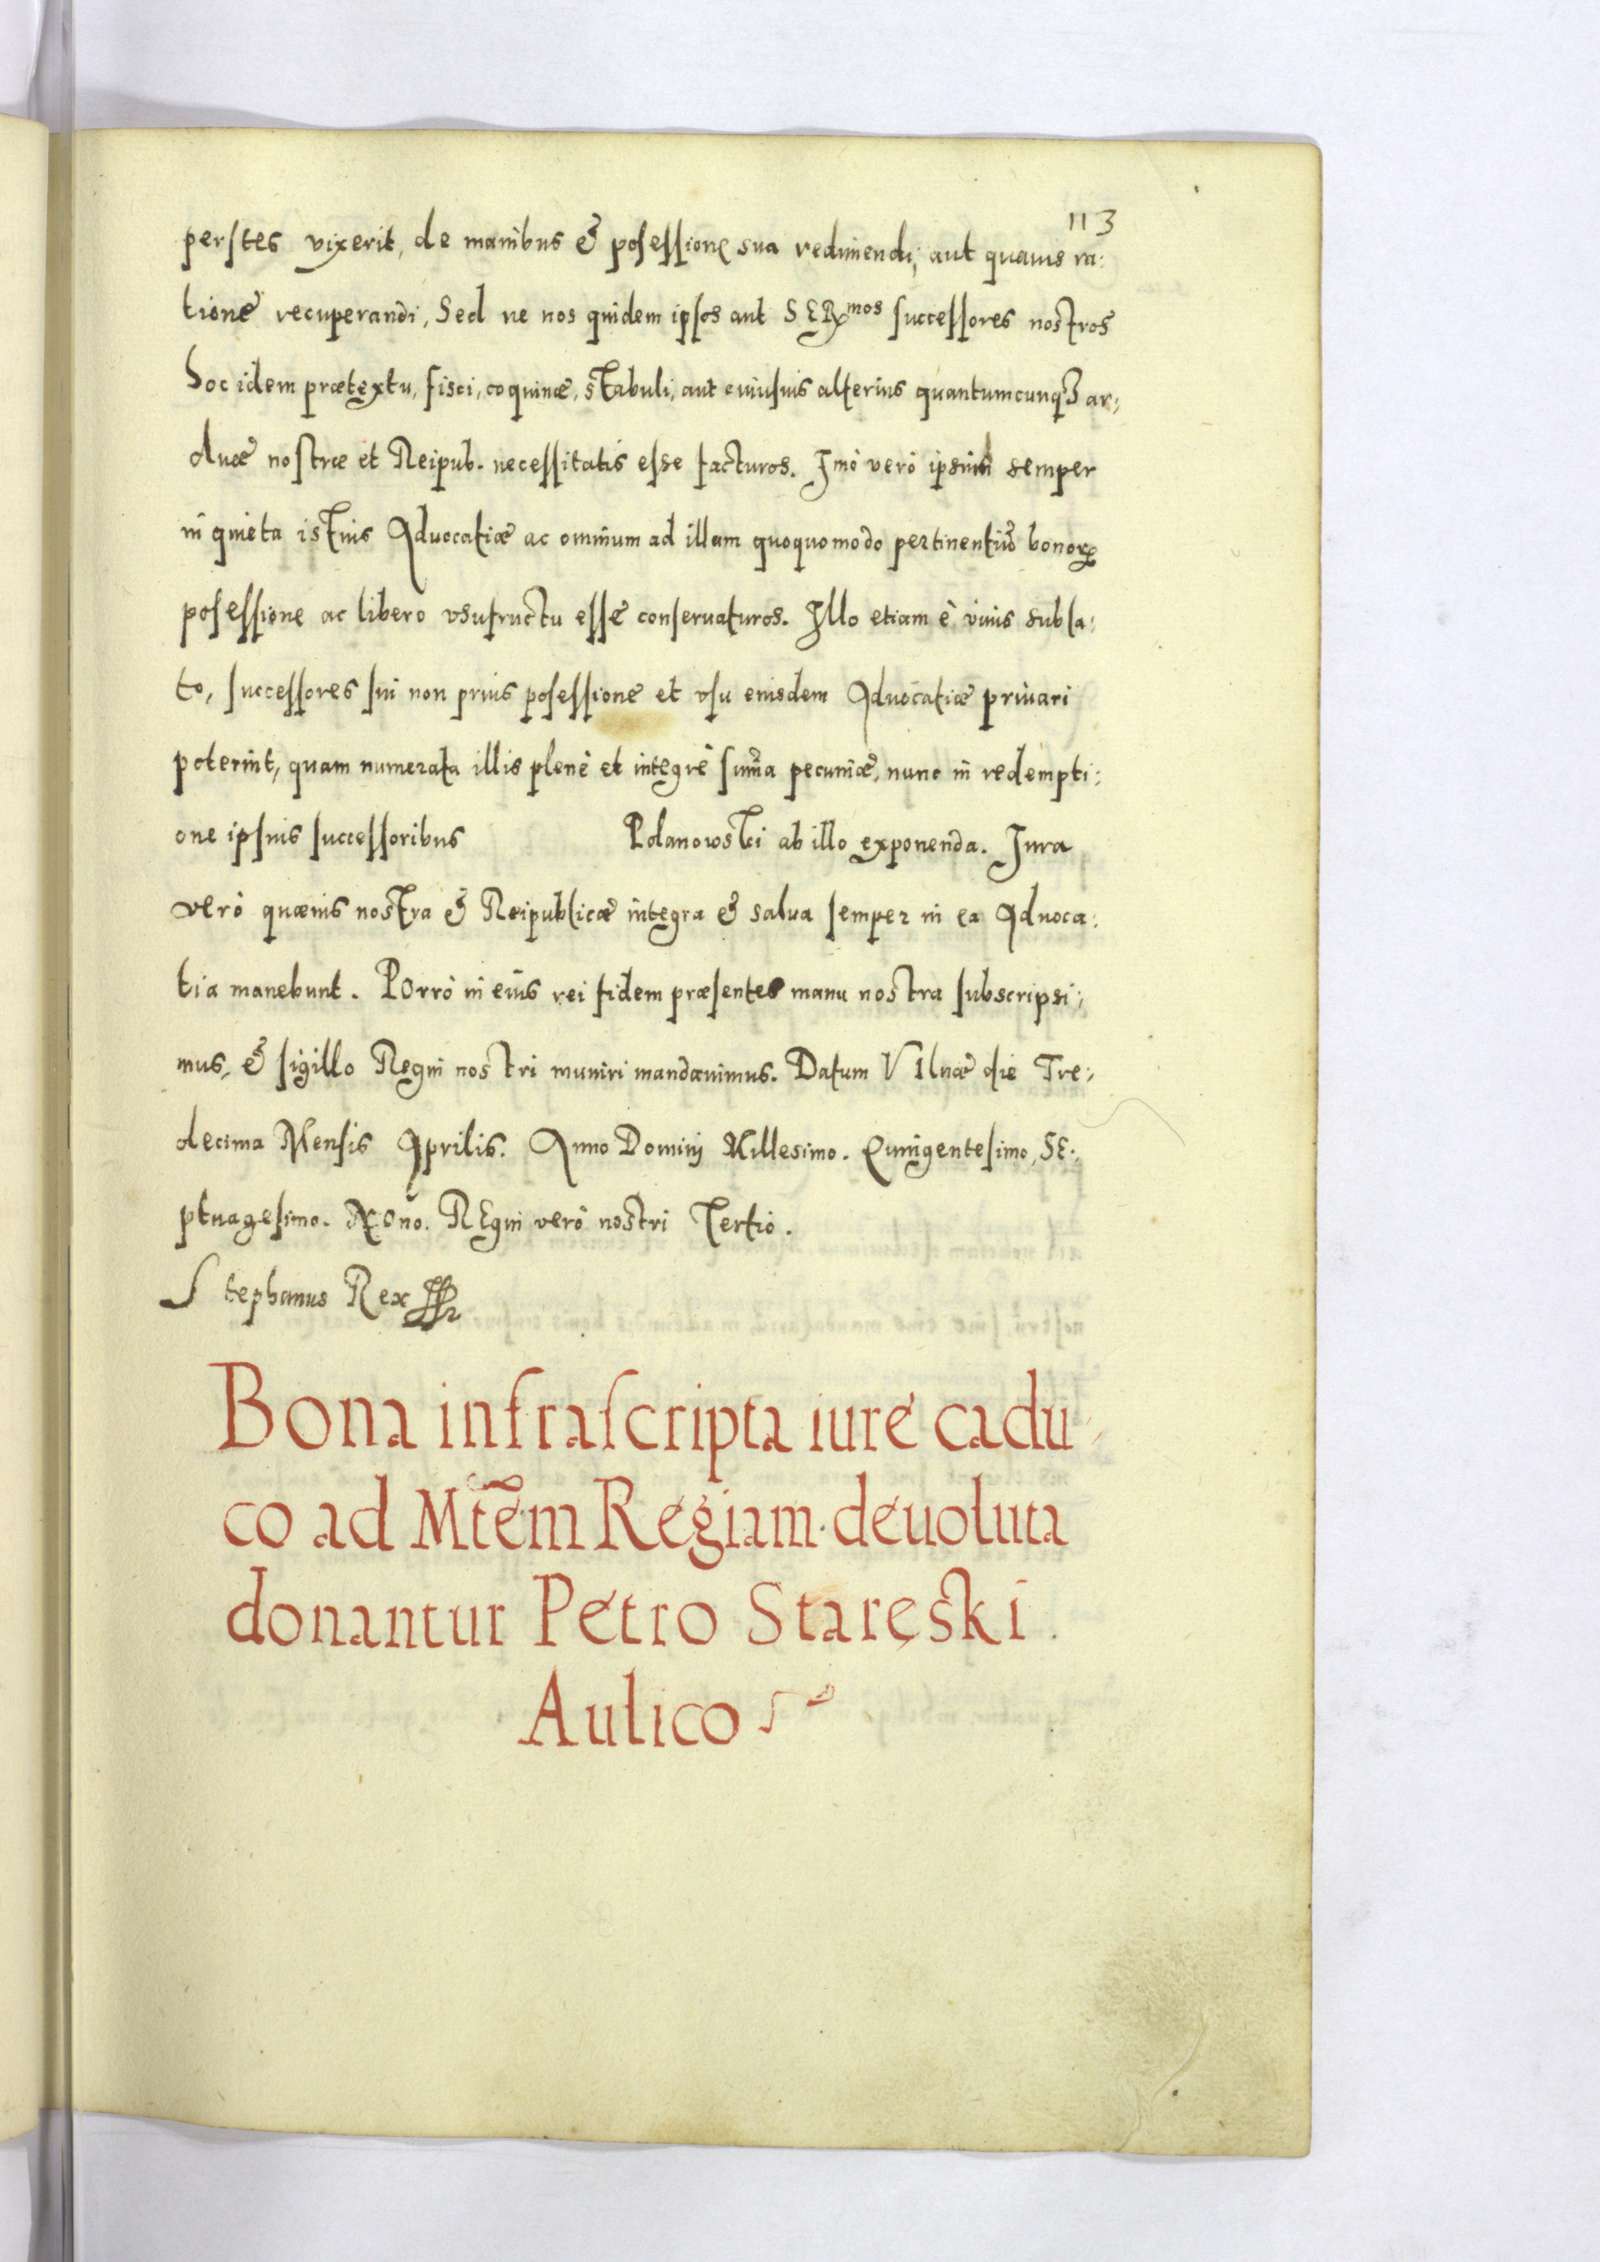 113
perstes vixerit, de manibus & posessione sua redimendi, aut quauis ra:
tione recuperandi, Sed ne nos quidem ipsos aut SERmos successores nostros
hoc idem prætextu, fisci, coquinæ, stabuli, aut cuiusuis alterius quantumcunq3 ar:
duæ nostræ et Reipub. necessitatis esse facturos. Imò verò ipsum semper
in quieta istius Aduocatiæ ac omnium ad illam quoquomodo pertinentiũ bonorꝝ
posessione ac libero vsufructu esse conseruaturos. Illo etiam è viuis subla:
to, successores sui non prius posessione et vsu eiusdem Aduocatiæ priuari
poterint, quam numerata illis plenè et integrè sum̃a pecuniæ, nunc in redempti:
one ipsius successoribus Polanowski ab illo exponenda. Iura
verò quæuis nostra & Reipublicæ integra & salua semper in ea Aduoca:
tia manebunt. Porrò in eius rei fidem præsentes manu nostra subscripsi:
mus, & sigillo Regni nostri muniri mandauimus. Datum Vilnæ die Tre:
decima Mensis Aprilis. Anno Domini Millesimo. Quingentesimo, SE:
ptuagesimo. Nono. REgni verò nostri Tertio.
Stephanus Rex
Bona infrascripta iure cadu
co ad Mtẽm Regiam deuoluta
donantur Petro Staręski
Aulico